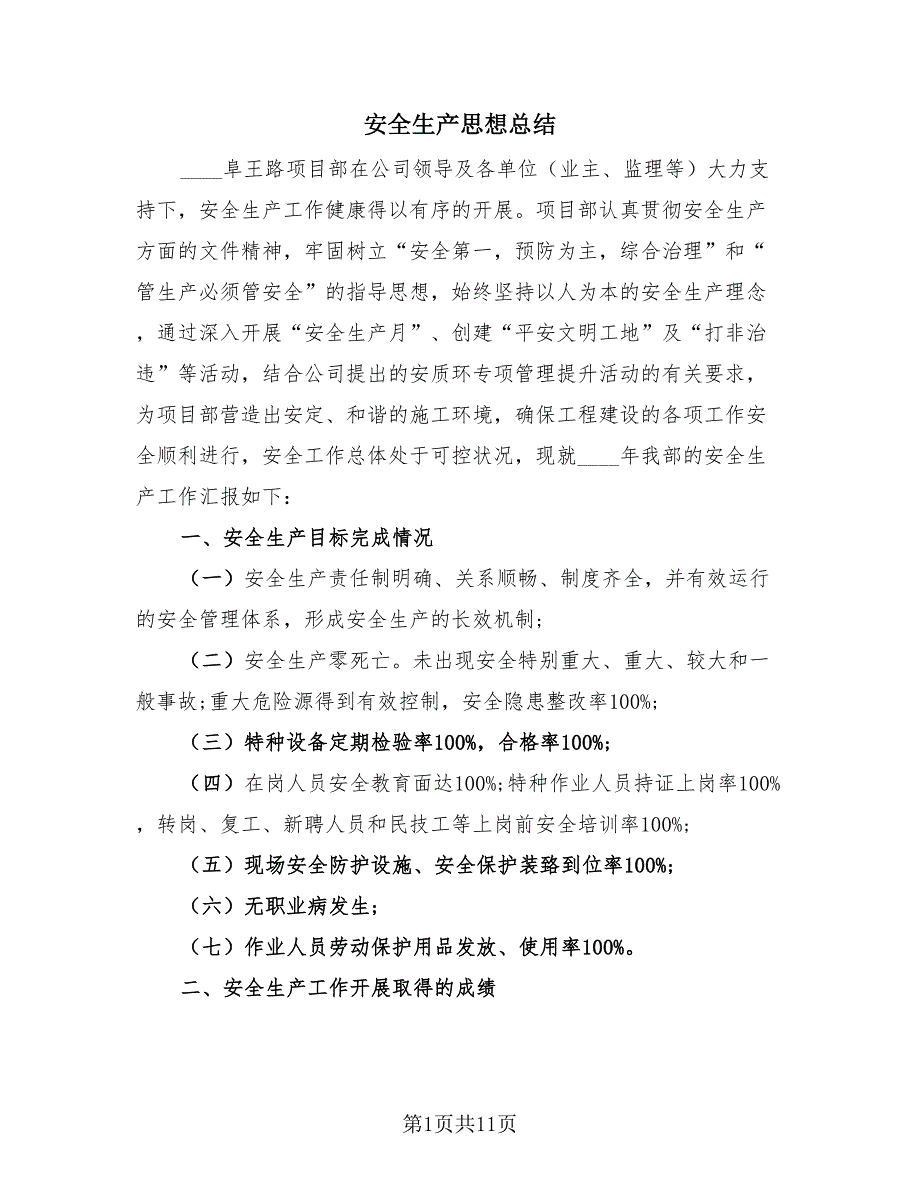 安全生产思想总结
____阜王路项目部在公司领导及各单位（业主、监理等）大力支
持下，安全生产工作健康得以有序的开展。项目部认真贯彻安全生产
方面的文件精神，牢固树立“安全第一，预防为主，综合治理”和“
管生产必须管安全”的指导思想，始终坚持以人为本的安全生产理念
，通过深入开展“安全生产月”、创建“平安文明工地”及“打非治
违”等活动，结合公司提出的安质环专项管理提升活动的有关要求，
为项目部营造出安定、和谐的施工环境，确保工程建设的各项工作安
全顺利进行，安全工作总体处于可控状况，现就____年我部的安全生
产工作汇报如下：
一、安全生产目标完成情况
（一）安全生产责任制明确、关系顺畅、制度齐全，并有效运行
的安全管理体系，形成安全生产的长效机制;
（二）安全生产零死亡。未出现安全特别重大、重大、较大和一
般事故;重大危险源得到有效控制，安全隐患整改率100%;
（三）特种设备定期检验率100%，合格率100%;
（四）在岗人员安全教育面达100%;特种作业人员持证上岗率100%
，转岗、复工、新聘人员和民技工等上岗前安全培训率100%;
（五）现场安全防护设施、安全保护装臵到位率100%;
（六）无职业病发生;
（七）作业人员劳动保护用品发放、使用率100%。
二、安全生产工作开展取得的成绩
第1页共11页